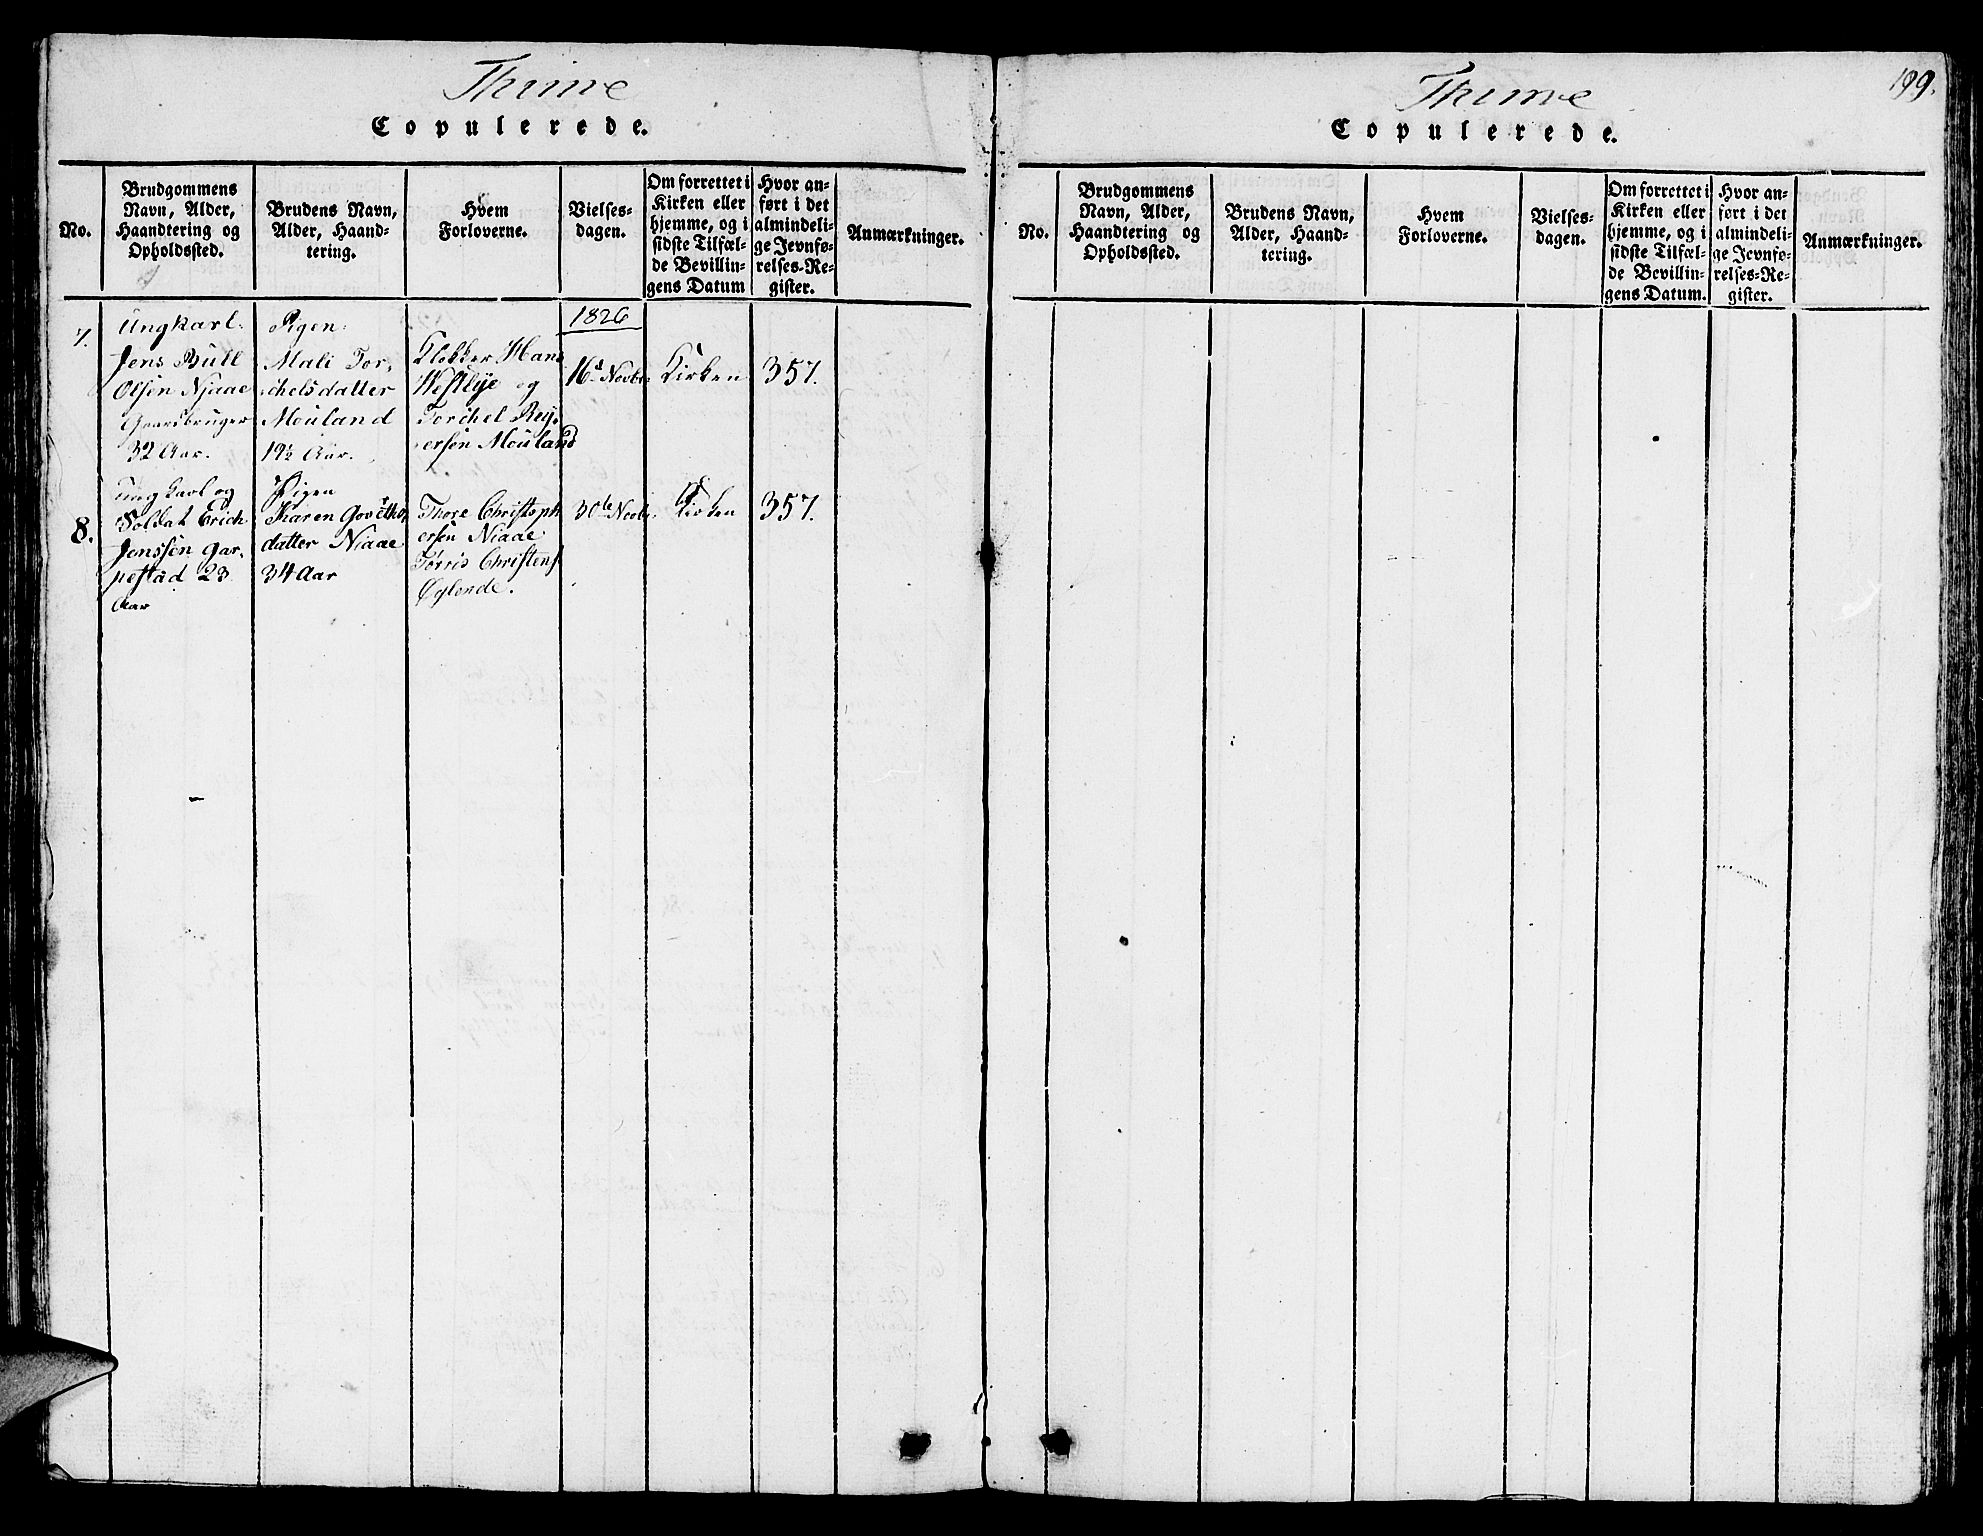 Thime
Copulerede.
No.
Brudgommens
Navn, Alder,
Haandtering og
Opholdssted.
Brudens Navn,
Alder, Haand-
tering.
Hvem
Forloverne.
Vielses-
dagen.
Om forrettet i
Kirken eller
hjemme, og i
sidste Tilfæl-
de Bevillin-
gens Datum
Hvor an-
ført i det
almindeli-
ge Jevnfø-
relses-Re-
gister.
Anmærkninger.
7.
Ungkarl
Jens Bull
Olsen Njaae
Gaardbruger
32 Aar.
Pigen
Mali Tor-
chelsdatter
Mouland
19½ Aar.
Klokker Hans
Westlye og
Torchel Rej-
ersen Mouland
1826
16d Novbr.
Kirken
357.
8.
Ung Karl og
Soldat Erich
Jenssen Gar-
pestad 23
Aar
Pigen
Karen
datter Niaae
34 Aar
Thore Christoph
ersen Niaae
Tørris Christens
30te Novbr.
Kirken
357.
Thime
199.
Copulerede.
No.
Brudgommens
Navn, Alder,
Haandtering og
Opholdssted.
Brudens Navn,
Alder, Haand-
tering.
Hvem
Forloverne.
Vielses-
dagen.
Om forrettet i
Kirken eller
hjemme, og i
sidste Tilfæl-
de Bevillin-
gens Datum.
Hvor an-
ført i det
almindeli-
ge Jevnfø-
relses-Re-
gister.
Anmærkninger.